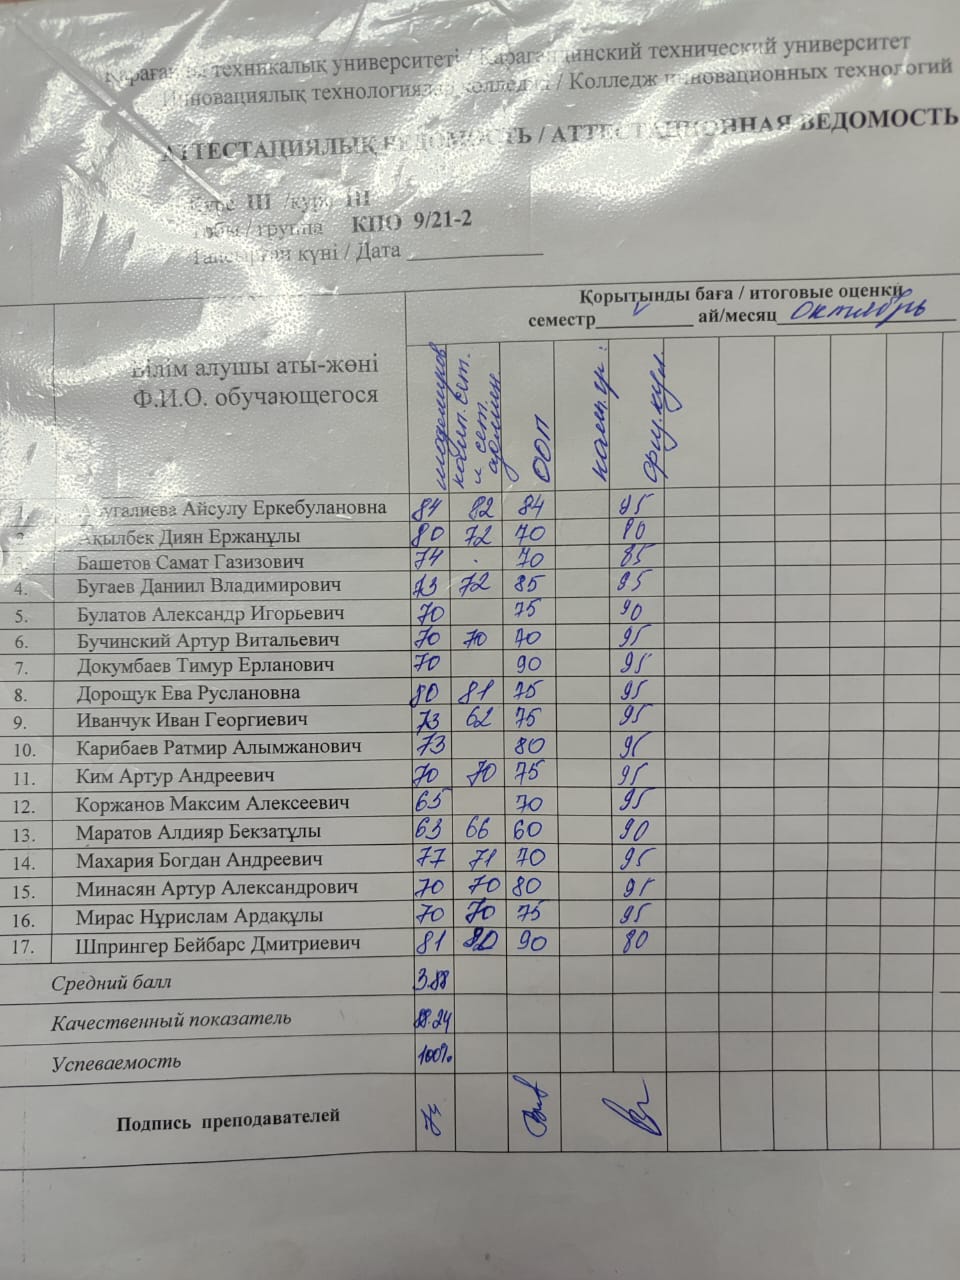 Қарағанды техникалық университеті / Карагандинский технический университет
Инновациялық технологиялар колледжі / Колледж инновационных технологий
АТТЕСТАЦИЯЛЫҚ ВЕДОМОСТЬ / АТТЕСТАЦИОННАЯ ВЕДОМОСТЬ
Курс III /курс III
Тобы / группа КПО 9/21-2
Тапсырған күні / Дата
Қорытынды баға / итоговые оценки
семестр V ай/месяц Октябрь
Білім алушы аты-жөні
Ф.И.О. обучающегося
комп. сет.
и сет.
ООП
1. Айсулу Еркебулановна 84 82 84 95
2. Ақылбек Диян Ержанұлы 80 72 70 80
3. Башетов Самат Газизович 74 70 85
4. Бугаев Даниил Владимирович 73 72 85 95
5. Булатов Александр Игорьевич 70 75 90
6. Бучинский Артур Витальевич 70 70 70 95
7. Докумбаев Тимур Ерланович 70 90 95
8. Дорощук Ева Руслановна 80 81 75 95
9. Иванчук Иван Георгиевич 73 62 75 95
10. Карибаев Ратмир Алымжанович 73 80 95
11. Ким Артур Андреевич 70 70 75 95
12. Коржанов Максим Алексеевич 65 70 95
13. Маратов Алдияр Бекзатұлы 63 66 60 90
14. Махария Богдан Андреевич 77 71 70 95
15. Минасян Артур Александрович 70 70 80 95
16. Мирас Нұрислам Ардақұлы 70 70 75 95
17. Шпрингер Бейбарс Дмитриевич 81 80 90 80
Средний балл 3.88
Качественный показатель 88.24
Успеваемость 100%
Подпись преподавателей